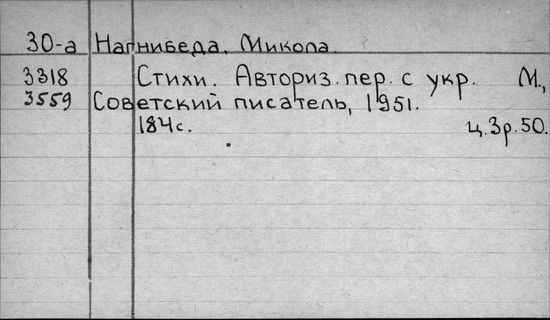 30-а Нагнибеда, Микола.
3318 Стихи. Авториз. пер. с укр. М.,
3559 Советский писатель, 1951.
184с. ц. 3р. 50.